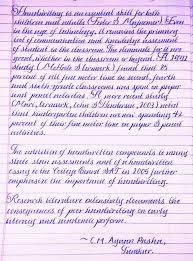 Handwriting is an essential skill for both
children and adults (Feder & Majnemer). Even
in the age of technology, it remains the primary
tool of communication and knowledge assessment
of student in the classroom. The demands for it are
great, whether in the classroom or beyond. A 1992
study (McHale & Cermak) found that 85
percent of all fine motor time in second, fourth
and sixth-grade classrooms was spent on paper
and pencil activities. A more recent study
(Marr, Cermak, Cohn & Henderson, 2003) noted
that kindergarten children are now spending 42
percent of their fine motor time on paper & pencil
activities.
The addition of handwritten components to many
state state assessments and of a handwritten
essay to the College Board SAT in 2005 further
emphasize the importance of handwriting.
Research literature extensively documents the
consequences of poor handwriting on early
literacy and academic perform.
~ C.M. Ayana